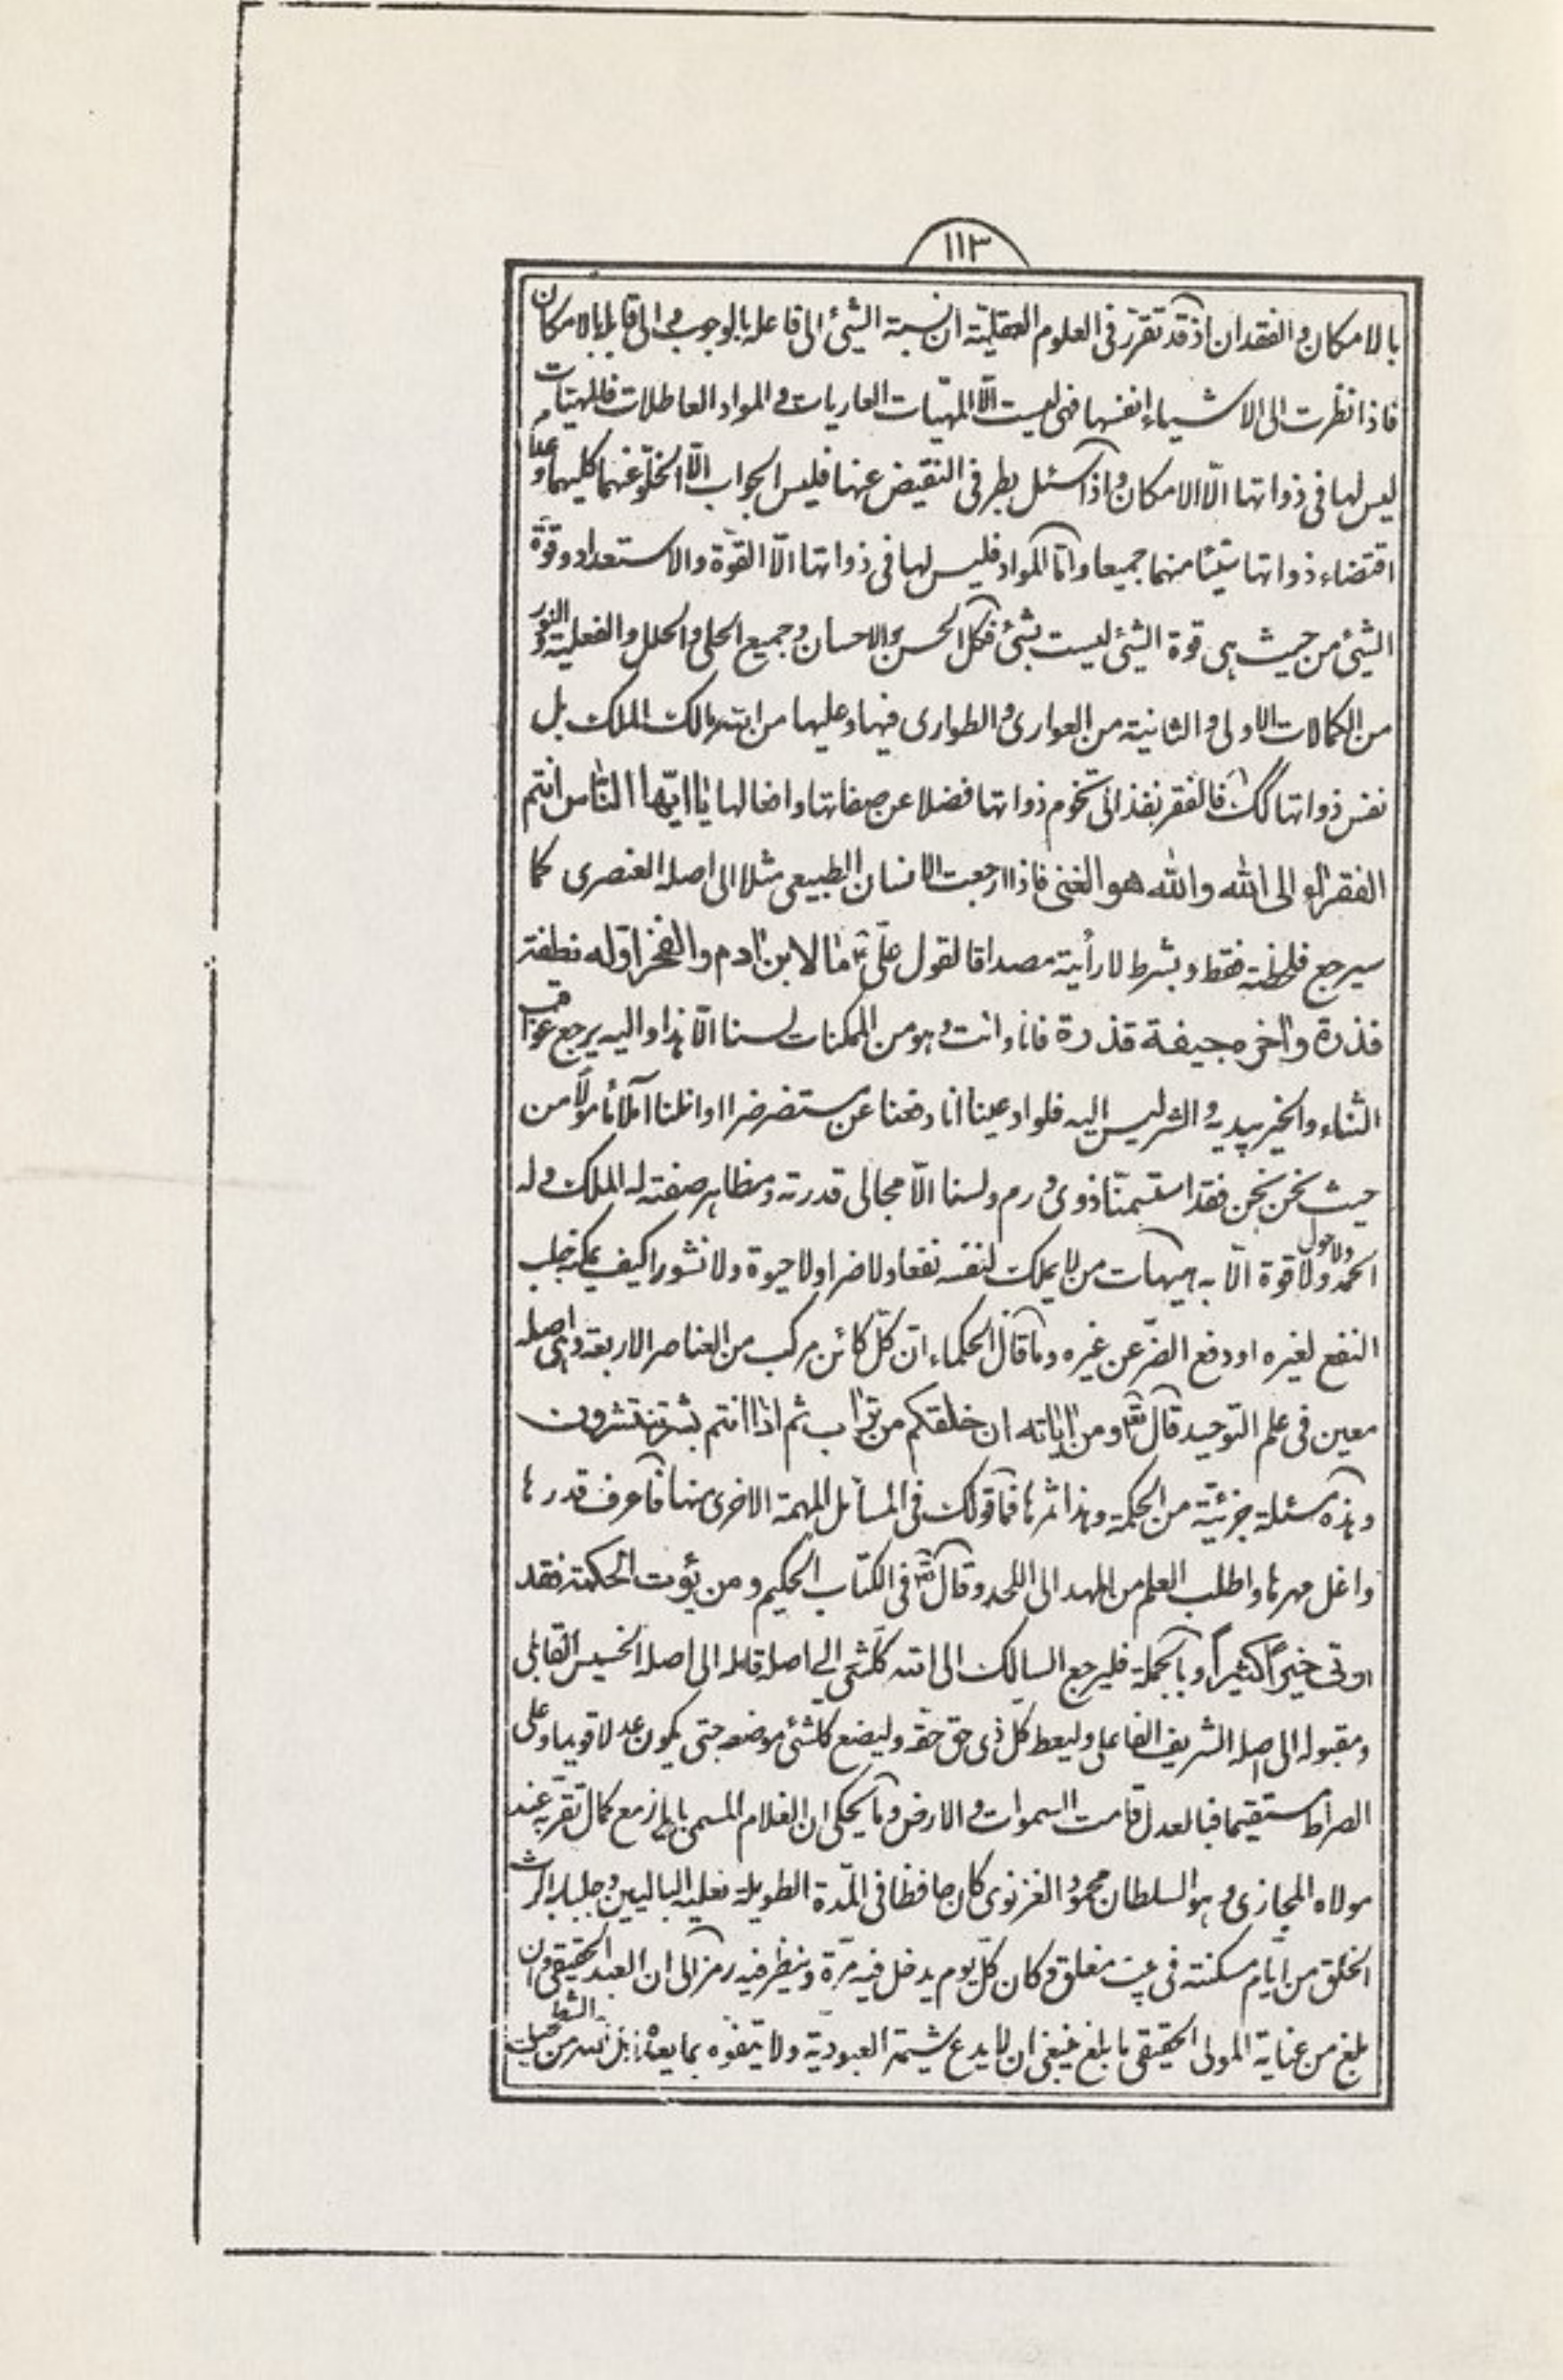 ١١٣
بالامكان والفقدان اذ قد تقرر فى العلوم العقليّة ان نسبة الشيئ الى فاعله بالوجوب و الى قابله بالامكان
فاذا نظرت الى الاشياء انفسها فهى ليست الّا المهيّات العاريات و المواد العاطلات فالمهيّات
ليس لها فى ذواتها الّا الامكان و اذا سئل بطرفى النقيض عنها فليس الجواب الّا الخلوّ عنهما كليهما و عدم
اقتضاء ذواتها شيئا منهما جميعا وامّا المواد فليس لها فى ذواتها الّا القوّة والاستعداد و قوّة
الشيئ من حيث هى قوة الشيئ ليست بشيئ فكل الحسن و الاحسان و جميع الحلى و الحلل و الفعلية و النور
من الكمالات الاولى و الثانية من العوارى و الطوارى فيها و عليها من الله مالك الملك بل
نفس ذواتها كك فالفقر نفذ الى تخوم ذواتها فضلا عن صفاتها وافعالها يا ايّها الناس انتم
الفقراء الى الله والله هو الغنى فاذا ارجعت الانسان الطبيعى مثلا الى اصله العنصرى كما
سيرجع فلحظته فقط و بشرط لا رأيته مصداقا لقول علىّ ع ما لابن ادم والفخر اوّله نطفة
قذرة واخره جيفة قذرة فانا وانت و هو من الممكنات لسنا الّا هذا و اليه يرجع عواقب
الثناء والخير بيديه و الشر ليس اليه فلو ادعينا انا دفعنا عن مستضر ضرا او انلنا آملا مأمولا من
حيث نحن نحن فقد استسمنّا ذوى ورم و لسنا الّا مجالى قدرته و مظاهر صفته له الملك و له
الحمد ولا حول ولا قوة الّا به هيهات من لا يملك لنفسه نفعا ولا ضرا ولا حيوة ولا نشورا كيف يمكنه جلب
النفع لغيره او دفع الضرّ عن غيره وما قال الحكماء انّ كلّ كائن مركب من العناصر الاربعة وهى اصله
معين فى علم التوحيد قال تعالى ومن اياته ان خلقكم من تراب ثم اذا انتم بشر تنتشرون
وهذه مسئلة جزئيّة من الحكمة وهذا ثمرها فما قولك فى المسائل المهمة الاخرى منها فاعرف قدرها
واغل مهرها واطلب العلم من المهد الى اللحد وقال تعالى فى الكتاب الحكيم ومن يؤت الحكمة فقد
اوتى خيرا كثيرا و بالجملة فليرجع السالك الى الله كلشئ الى اصله قابله الى اصله الخسيس القابلى
ومقبوله الى اصله الشريف الفاعلى وليعط كل ذى حق حقه وليضع كلشئ موضعه حتى يكون عدلا قويما وعلى
الصراط مستقيما فبالعدل قامت السموات و الارض و ما يحكى ان الغلام المسمى باياز مع كمال تقرّبه عند
مولاه المجازى و هو السلطان محمود الغزنوى كان حافظا فى المدّة الطويلة نعليه الباليين و جلبابه الرث
الخلق من ايّام مسكنته فى بيت مغلق و كان كلّ يوم يدخل فيه مرّة و ينظر فيه رمز الى ان العبد الحقيقى و ان
بلغ من عناية المولى الحقيقى ما بلغ ينبغى ان لا يدع شيمة العبوديّة ولا يتفوه بما يعد من الشطحيات